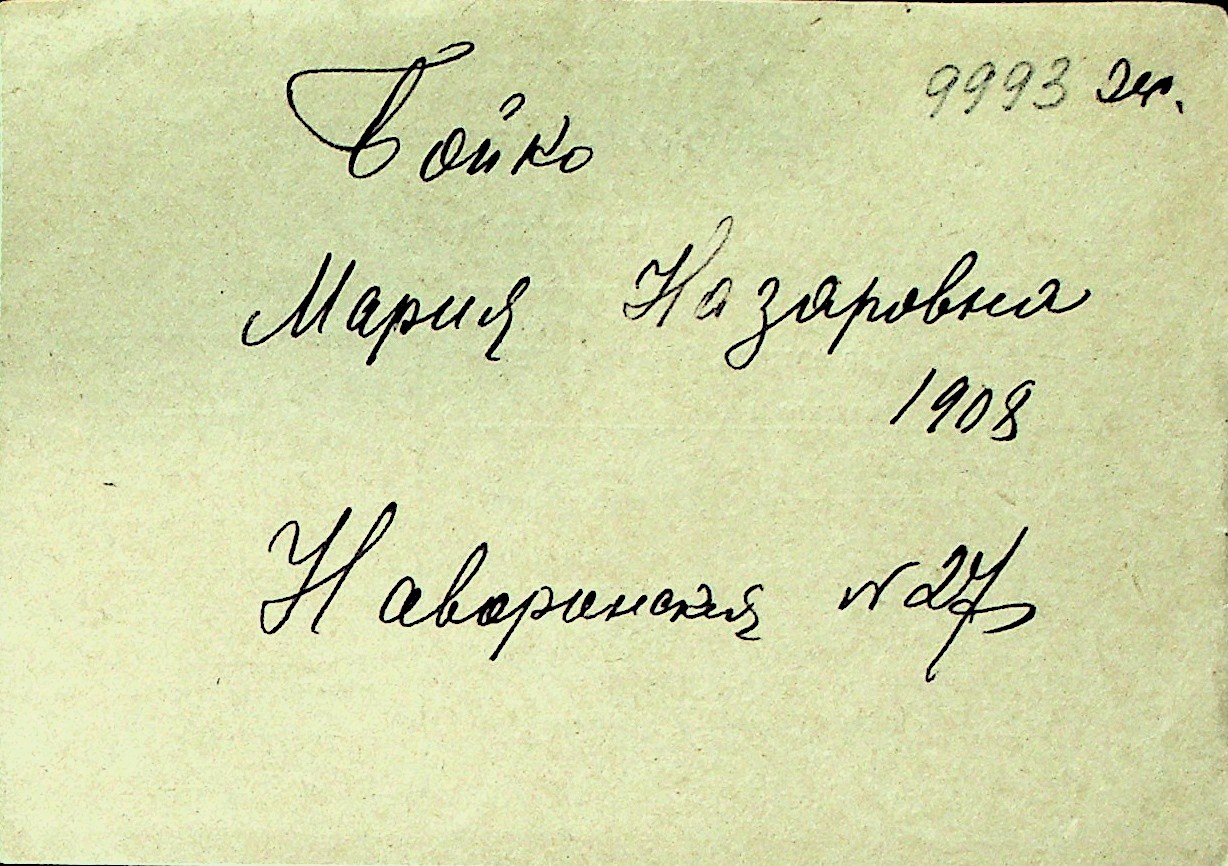 9993 эк.
Бойко
Мария Назаровна
1908
Наваринская N 27